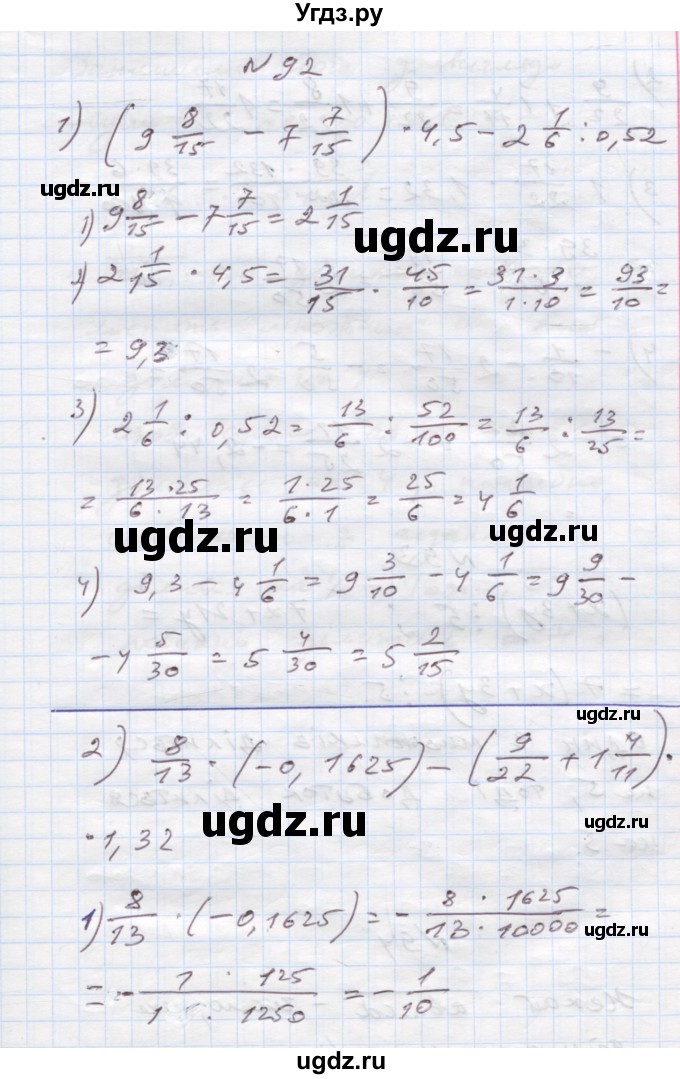 Угдз.ру
N 92
1) (9 8/15 - 7 7/15) · 4,5 - 2 1/6 : 0,52
ugdz.ru
1) 9 8/15 - 7 7/15 = 2 1/15
ugdz.ru
ugdz.ru
2) 2 1/15 · 4,5 = 31/15 · 45/10 = 31·3/1·10 = 93/10 =
= 9,3
3) 2 1/6 : 0,52 = 13/6 : 52/100 = 13/6 : 13/25 =
= 13·25/6·13 = 1·25/6·1 = 25/6 = 4 1/6
ugdz.ru
ugdz.ru
4) 9,3 - 4 1/6 = 9 3/10 - 4 1/6 = 9 9/30 -
- 4 5/30 = 5 4/30 = 5 2/15
ugdz.ru
ugdz.ru
2) 8/13 · (-0,1625) - (9/22 + 1 4/11) ·
· 1,32
ugdz.ru
ugdz.ru
1) 8/13 · (-0,1625) = - 8 · 1625/13 · 10000 =
ugdz.ru
ugdz.ru
= - 1 · 125/1 · 1250 = - 1/10
ugdz.ru